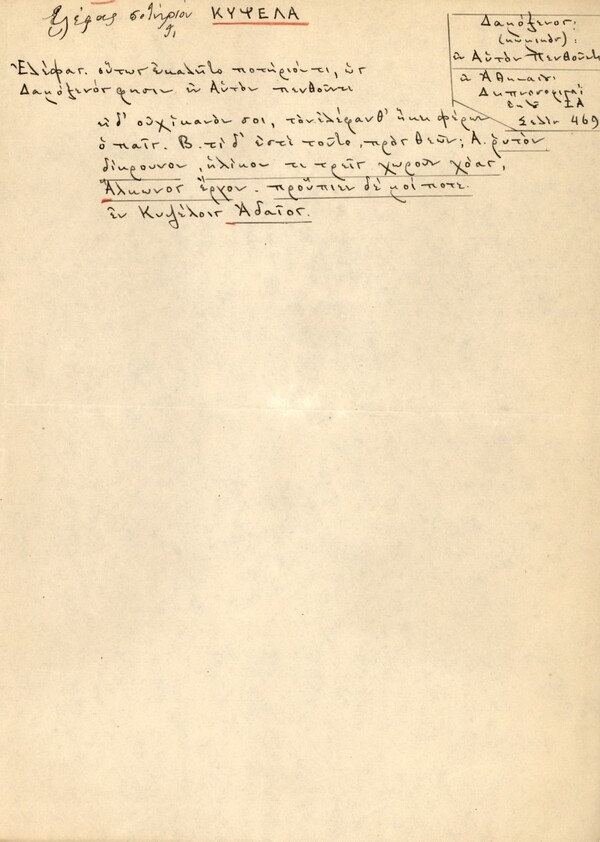 Ἐλέφας ποτήριόν τι ΚΥΨΕΛΑ
Δαμόξενος:
(κωμικός):
ἐν Αὑτὸν Πενθοῦντι
ἐν Ἀθηναίῳ:
Δειπνοσοφισταί
ΙΑ
Σελὶς 469
Ἐλέφας. οὕτως ἐκαλεῖτο ποτήριόν τι, ὡς
Δαμόξενός φησιν ἐν Αὑτὸν πενθοῦντι
εἰ δ' οὐχ ἱκανόν σοι, τὸν ἐλέφανθ' ἥκει φέρων
ὁ παῖς. Β. τί δ' ἐστὶ τοῦτο, πρὸς θεῶν; Α. ῥυτὸν
δίκρουνον, ἡλίκον τι τρεῖς χωροῦν χόας,
Ἄλκωνος ἔργον. προὔπιεν δέ μοί ποτε.
ἐν Κυψέλοις Ἀδαῖος.